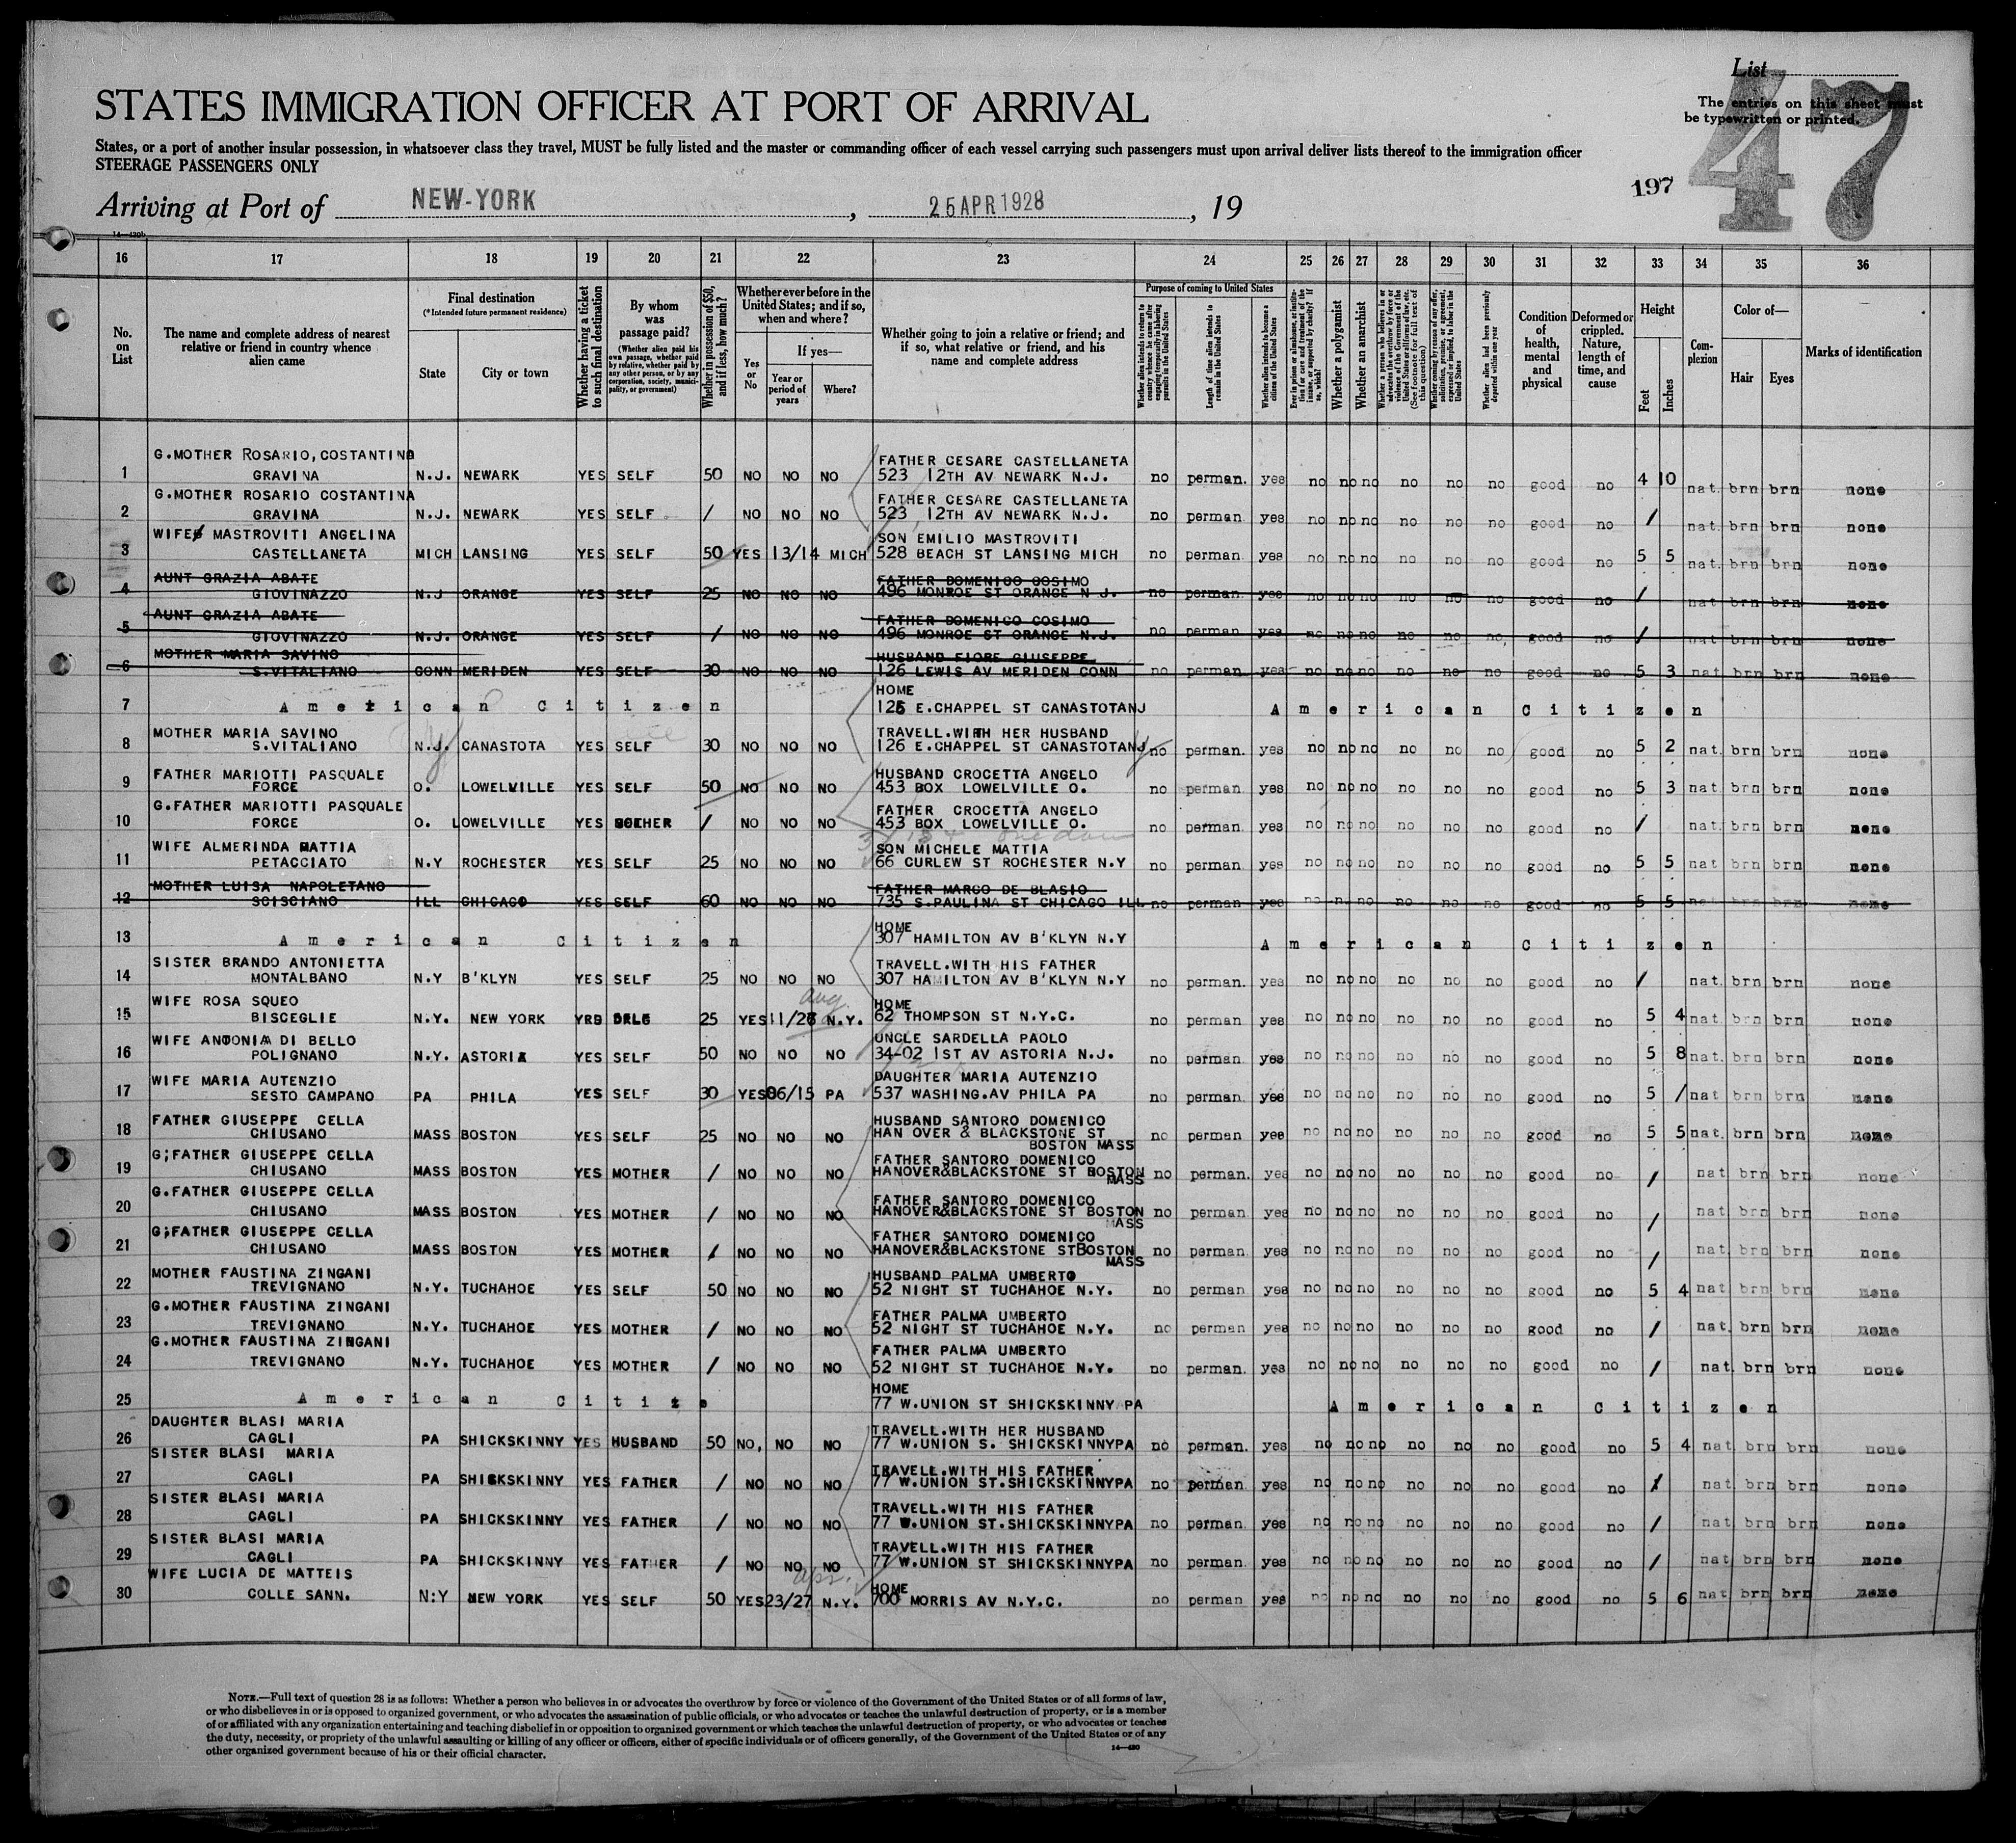 List
47
The entries on this sheet must
be typewritten or printed.
STATES IMMIGRATION OFFICER AT PORT OF ARRIVAL
States, or a port of another insular possession, in whatsoever class they travel, MUST be fully listed and the master or commanding officer of each vessel carrying such passengers must upon arrival deliver lists thereof to the immigration officer
STEERAGE PASSENGERS ONLY
197
Arriving at Port of NEW-YORK, 25 APR 1928, 19
14—430b
16 17 18 19 20 21 22 23 24 25 26 27 28 29 30 31 32 33 34 35 36
No. on List
The name and complete address of nearest relative or friend in country whence alien came
Final destination (*Intended future permanent residence)
State
City or town
Whether having a ticket to such final destination
By whom was passage paid? (Whether alien paid his own passage, whether paid by relative, whether paid by any other person, or by any corporation, society, municipality, or government)
Whether in possession of $50, and if less, how much?
Whether ever before in the United States; and if so, when and where?
Yes or No
If yes—
Year or period of years
Where?
Whether going to join a relative or friend; and if so, what relative or friend, and his name and complete address
Purpose of coming to United States
Whether alien intends to return to country whence he came after engaging temporarily in laboring pursuits in the United States
Length of time alien intends to remain in the United States
Whether alien intends to become a citizen of the United States
Ever in prison or almshouse, or institution for care and treatment of the insane, or supported by charity? If so, which?
Whether a polygamist
Whether an anarchist
Whether a person who believes in or advocates the overthrow by force or violence of the Government of the United States or all forms of law, etc. (See footnote for full text of this question)
Whether coming by reason of any offer, solicitation, promise, or agreement, expressed or implied, to labor in the United States
Whether alien had been previously deported within one year
Condition of health, mental and physical
Deformed or crippled. Nature, length of time, and cause
Height
Feet
Inches
Complexion
Color of—
Hair
Eyes
Marks of identification
G.MOTHER ROSARIO, COSTANTINO FATHER CESARE CASTELLANETA
1 GRAVINA N.J. NEWARK YES SELF 50 NO NO NO 523 12TH AV NEWARK N.J. no perman. yes no no no no no no good no 4 10 nat. brn brn none
G.MOTHER ROSARIO COSTANTINA FATHER CESARE CASTELLANETA
2 GRAVINA N.J. NEWARK YES SELF / NO NO NO 523 12TH AV NEWARK N.J. no perman yes no no no no no no good no / nat. brn brn none
WIFE MASTROVITI ANGELINA SON EMILIO MASTROVITI
3 CASTELLANETA MICH LANSING YES SELF 50 YES 13/14 MICH 528 BEACH ST LANSING MICH no perman yes no no no no no no good no 5 5 nat. brn brn none
AUNT GRAZIA ABATE FATHER DOMENICO COSIMO
4 GIOVINAZZO N.J ORANGE YES SELF 25 NO NO NO 496 MONROE ST ORANGE N J. no perman yes no no no no no no good no / nat brn brn none
AUNT GRAZIA ABATE FATHER DOMENICO COSIMO
5 GIOVINAZZO N.J. ORANGE YES SELF / NO NO NO 496 MONROE ST ORANGE N.J. no perman yes no no no no no no good no / nat brn brn none
MOTHER MARIA SAVINO HUSBAND FIORE GIUSEPPE
6 S.VITALIANO CONN MERIDEN YES SELF 30 NO NO NO 126 LEWIS AV MERIDEN CONN no perman yes no no no no no no good no 5 3 nat brn brn none
HOME
7 American Citizen 126 E.CHAPPEL ST CANASTOTANJ American Citizen
MOTHER MARIA SAVINO TRAVELL.WITH HER HUSBAND
8 S.VITALIANO N.J. CANASTOTA YES SELF 30 NO NO NO 126 E.CHAPPEL ST CANASTOTANJ no perman. yes no no no no no no good no 5 2 nat. brn brn none
FATHER MARIOTTI PASQUALE HUSBAND CROCETTA ANGELO
9 FORCE O. LOWELVILLE YES SELF 50 NO NO NO 453 BOX LOWELVILLE O. no perman yes no no no no no no good no 5 3 nat. brn brn none
G.FATHER MARIOTTI PASQUALE FATHER CROCETTA ANGELO
10 FORCE O. LOWELVILLE YES MOTHER / NO NO NO 453 BOX LOWELVILLE O. no perman yes no no no no no no good no / nat. brn brn none
WIFE ALMERINDA MATTIA SON MICHELE MATTIA
11 PETACCIATO N.Y ROCHESTER YES SELF 25 NO NO NO 66 CURLEW ST ROCHESTER N.Y no perman yes no no no no no no good no 5 5 nat brn brn none
MOTHER LUISA NAPOLETANO FATHER MARCO DE BLASIO
12 SCISCIANO ILL CHICAGO YES SELF 60 NO NO NO 735 S.PAULINA ST CHICAGO ILL no perman yes no no no no no no good no 5 5 nat brn brn none
HOME
13 American Citizen 307 HAMILTON AV B'KLYN N.Y American Citizen
SISTER BRANDO ANTONIETTA TRAVELL.WITH HIS FATHER
14 MONTALBANO N.Y B'KLYN YES SELF 25 NO NO NO 307 HAMILTON AV B'KLYN N.Y no perman. yes no no no no no no good no / nat. brn brn none
WIFE ROSA SQUEO aug. HOME
15 BISCEGLIE N.Y. NEW YORK 25 YES 11/26 N.Y. 62 THOMPSON ST N.Y.C. no perman yes no no no no no no good no 5 4 nat. brn brn none
WIFE ANTONIA DI BELLO UNCLE SARDELLA PAOLO
16 POLIGNANO N.Y. ASTORIA YES SELF 50 NO NO NO 34-02 1ST AV ASTORIA N.J. no perman yes no no no no no no good no 5 8 nat. brn brn none
WIFE MARIA AUTENZIO DAUGHTER MARIA AUTENZIO
17 SESTO CAMPANO PA PHILA YES SELF 30 YES 06/15 PA 537 WASHING.AV PHILA PA no perman. yes no no no no no no good no 5 / nat brn brn none
FATHER GIUSEPPE CELLA HUSBAND SANTORO DOMENICO
18 CHIUSANO MASS BOSTON YES SELF 25 NO NO NO HAN OVER & BLACKSTONE ST BOSTON MASS no perman yes no no no no no no good no 5 5 nat. brn brn none
G;FATHER GIUSEPPE CELLA FATHER SANTORO DOMENICO
19 CHIUSANO MASS BOSTON YES MOTHER / NO NO NO HANOVER&BLACKSTONE ST BOSTON MASS no perman. yes no no no no no no good no / nat brn brn none
G.FATHER GIUSEPPE CELLA FATHER SANTORO DOMENICO
20 CHIUSANO MASS BOSTON YES MOTHER / NO NO NO HANOVER&BLACKSTONE ST BOSTON MASS no perman yes no no no no no no good no / nat brn brn none
G;FATHER GIUSEPPE CELLA FATHER SANTORO DOMENICO
21 CHIUSANO MASS BOSTON YES MOTHER / NO NO NO HANOVER&BLACKSTONE STBOSTON MASS no perman yes no no no no no no good no / nat brn brn none
MOTHER FAUSTINA ZINGANI HUSBAND PALMA UMBERTO
22 TREVIGNANO N.Y. TUCHAHOE YES SELF 50 NO NO NO 52 NIGHT ST TUCHAHOE N.Y. no perman yes no no no no no no good no 5 4 nat brn brn none
G.MOTHER FAUSTINA ZINGANI FATHER PALMA UMBERTO
23 TREVIGNANO N.Y. TUCHAHOE YES MOTHER / NO NO NO 52 NIGHT ST TUCHAHOE N.Y. no perman yes no no no no no no good no / nat. brn brn none
G.MOTHER FAUSTINA ZINGANI FATHER PALMA UMBERTO
24 TREVIGNANO N.Y. TUCHAHOE YES MOTHER / NO NO NO 52 NIGHT ST TUCHAHOE N.Y. no perman. yes no no no no no no good no / nat brn brn none
HOME
25 American Citize 77 W.UNION ST SHICKSKINNY PA American Citizen
DAUGHTER BLASI MARIA TRAVELL.WITH HER HUSBAND
26 CAGLI PA SHICKSKINNY YES HUSBAND 50 NO, NO NO 77 W.UNION S. SHICKSKINNYPA no perman. yes no no no no no no good no 5 4 nat brn brn none
SISTER BLASI MARIA TRAVELL.WITH HIS FATHER
27 CAGLI PA SHICKSKINNY YES FATHER / NO NO NO 77 W.UNION ST.SHICKSKINNYPA no perman yes no no no no no no good no / nat brn brn none
SISTER BLASI MARIA TRAVELL.WITH HIS FATHER
28 CAGLI PA SHICKSKINNY YES FATHER / NO NO NO 77 W.UNION ST.SHICKSKINNYPA no perman. yes no no no no no no good no / nat brn brn none
SISTER BLASI MARIA TRAVELL.WITH HIS FATHER
29 CAGLI PA SHICKSKINNY YES FATHER / NO NO NO 77 W.UNION ST SHICKSKINNYPA no perman yes no no no no no no good no / nat brn brn none
WIFE LUCIA DE MATTEIS apr. HOME
30 COLLE SANN. N:Y NEW YORK YES SELF 50 YES 23/27 N.Y. 700 MORRIS AV N.Y.C. no perman yes no no no no no no good no 5 6 nat brn brn none
NOTE.—Full text of question 28 is as follows: Whether a person who believes in or advocates the overthrow by force or violence of the Government of the United States or of all forms of law,
or who disbelieves in or is opposed to organized government, or who advocates the assassination of public officials, or who advocates or teaches the unlawful destruction of property, or is a member
of or affiliated with any organization entertaining and teaching disbelief in or opposition to organized government or which teaches the unlawful destruction of property, or who advocates or teaches
the duty, necessity, or propriety of the unlawful assaulting or killing of any officer or officers, either of specific individuals or of officers generally, of the Government of the United States or of any
other organized government because of his or their official character.
14—430